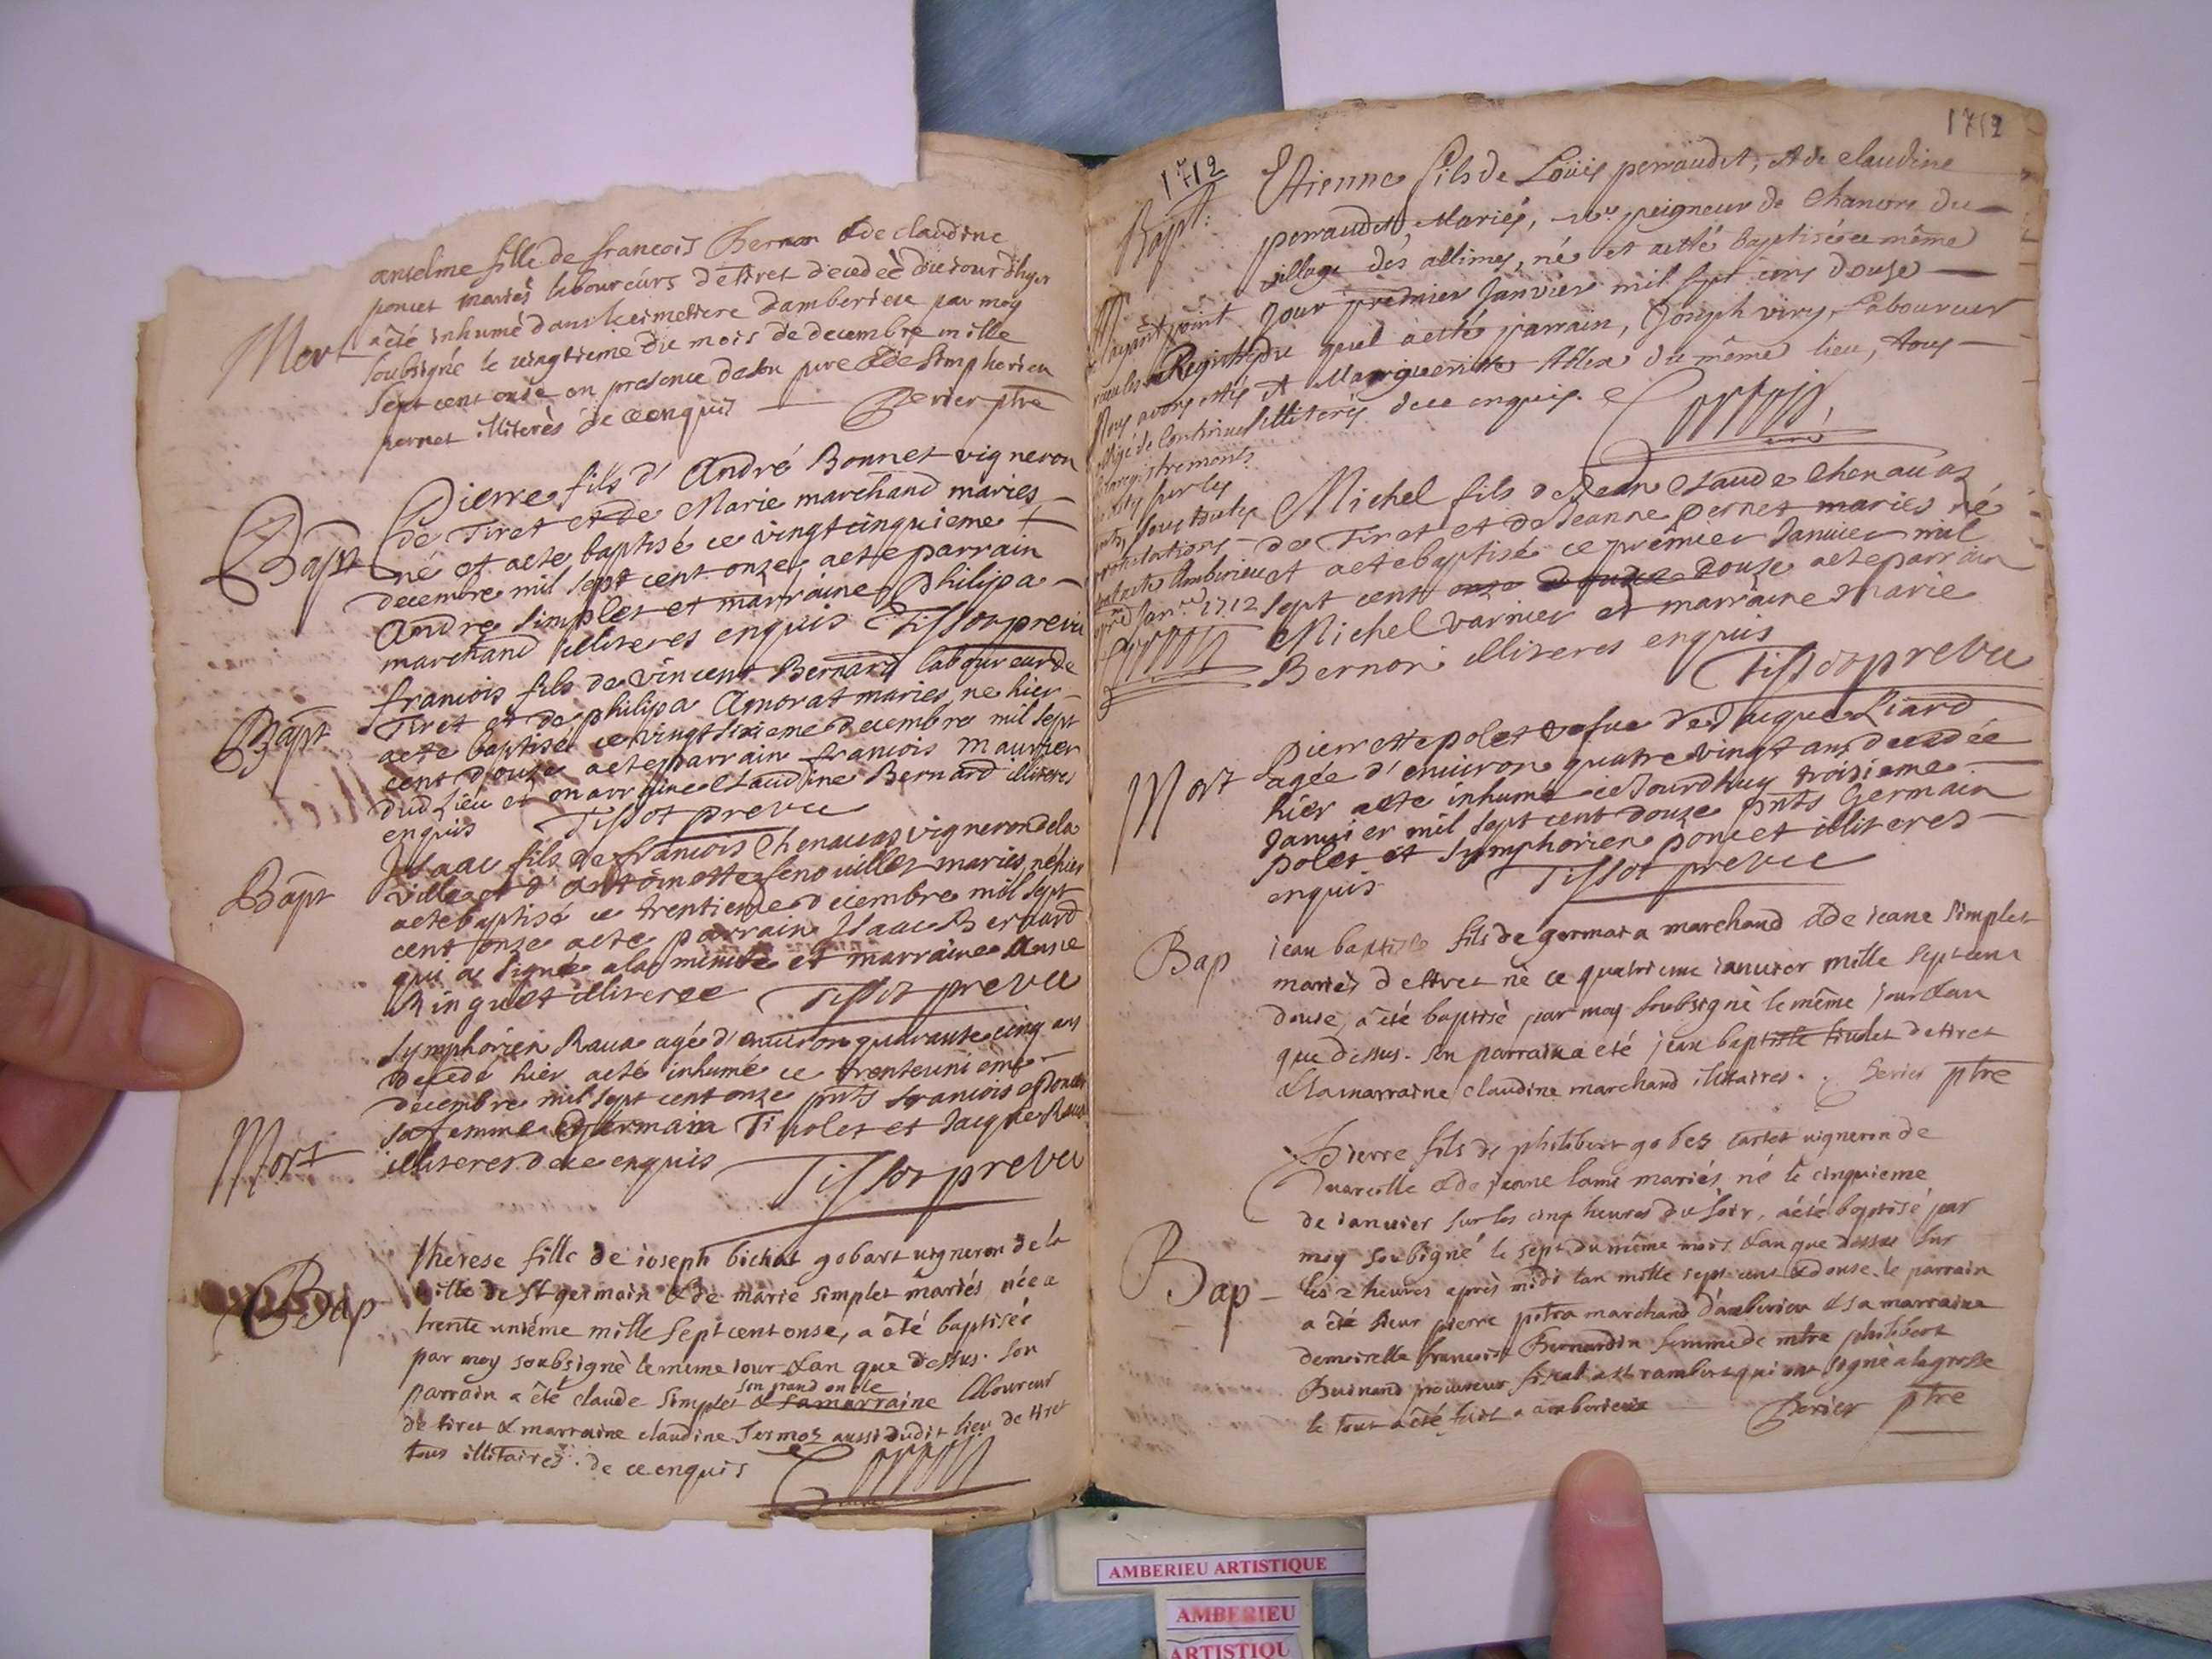 anselme fille de francois Bernon & de claudine
poncet mariés laboureurs de tiret decedeè du jour d'hyer
Mort
a été inhumé dans le cimettere d'amberieu par moy
soubsigné le vingtieme du mois de decembre mille
sept cent onse en presence de son pere & de simphorien
pernet illiterès de ce enquis
perier ptre
Bapt
Pierre fils d' André Bonnet vigneron
de Tiret et de Marie marchand maries
né et aeté baptisé ce vingtcinquieme
decembre mil sept cent onze, aeté parrain
André simplet et marraine Philipa
marchand illiteres enquis Tissot prevu
Bapt
francois fils de vincent Bernard laboureur de
Tiret et de philipa Amorat maries, ne hier
aeté baptisé ce vingt sixieme decembre mil sept
cent douze aeté parrain francois maunier
dud lieu et marraine Claudine Bernard illiteres
enquis Tissot prevu
Bapt
Isaac fils de francois Chenavas vigneron de la
ville et d' antoinette fenouillet maries, né hier
aeté baptisé ce trentieme decembre mil sept
cent onze aeté parrain Isaac Bernard
qui a signé a la minute et marraine Anne
Ringuet illiteree Tissot prevu
Symphorien Rava agé d'environ quarante cinq ans
decedé hier aeté inhumé ce trenteunieme
decembre mil sept cent onze pnts francoise Poncet
Mort
sa femme Germain Tivolet et Jacque Rava
illiteres de ce enquis
Tissot prevu
Bap
therese fille de ioseph bichat gobart vigneron de la
ville de st germain & de marie simplet mariés née a
trente uniéme mille sept cent onse, a été baptiseé
par moy soubsigné le meme iour & an que dessus. son
parrain a été claude simplet son grand oncle & sa marraine laboureur
de tiret & marraine claudine sermoz aussi dudit lieu de tiret
tous illitaires. de ce enquis
1712
1712
Bapt.
Etienne fils de Loüis perraudet, et de claudine
perraudet, Mariés, peigneur de Chanvre du
village dés allimes, né et aetté baptisé ce même
Jour premier Janvier mil sept cens douse
quel aetté parrain, Joseph viry, Laboureur
et Marguerite du même lieu, tous
illiterés de ce enquis.
N'ayant point
Registre du
Nous avons estés
obligé de Continuer
Enregistrements
sur les
sous toutes
protestations
Amberieu
Janv. 1712
Michel fils de Jean Claude Chenavaz
de Tiret et de Jeanne pernet maries né
et aeté baptisé ce premier Janvier mil
sept cent onze douze douze aeté parrain
Michel varnier et marraine marie
Bernon illiteres enquis
Tissot prevu
Mort
pierrette polet vefue de Jacque Liard
agée d'environ quatre vingt ans decedée
hier aeté inhumé ce Jourdhuy troisieme
Janvier mil sept cent douze pnts Germain
polet et Symphorien poncet illiteres
enquis Tissot prevu
Bap
iean baptiste fils de germain marchand & de ieane simplet
mariés de tiret né ce quatrieme ianvier mille sept cent
douse, a été baptisè par moy soubsignè le même iour & an
que dessus. son parrain a été iean baptiste tivolet de tiret
& la marraine claudine marchand illitaires. perier ptre
Bap
pierre fils de philibert gobez vigneron de
vareille & de ieane lami mariés né le cinquieme
de ianvier sur les cinq heures du soir, a été baptisé par
moy soubigné le sept du même mois & an que dessus sur
les 2 heures après midi l'an mille sept cent & douse. le parrain
a été sieur pierre pitra marchand d'amberieu & sa marraine
demoiselle francoise Bernardin femme de mtre philibert
Buinand procureur fiscal a st rambert qui ont signè a la grosse
le tout a été fait a amberieux perier ptre
AMBERIEU ARTISTIQUE
AMBERIEU
ARTISTIQU